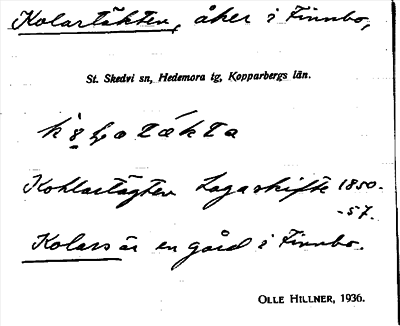 Kolartäkten, åker i Finnbo,
St. Skedvi sn, Hedemora tg, Kopparbergs län.
Kohlartägten Lagaskifte 1850-
-57.
Kolars är en gård i Finnbo.
OLLE HILLNER, 1936.